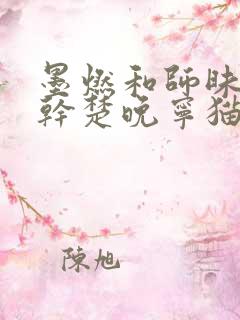 墨燃和師昧
幹楚晚寧猫
陳旭